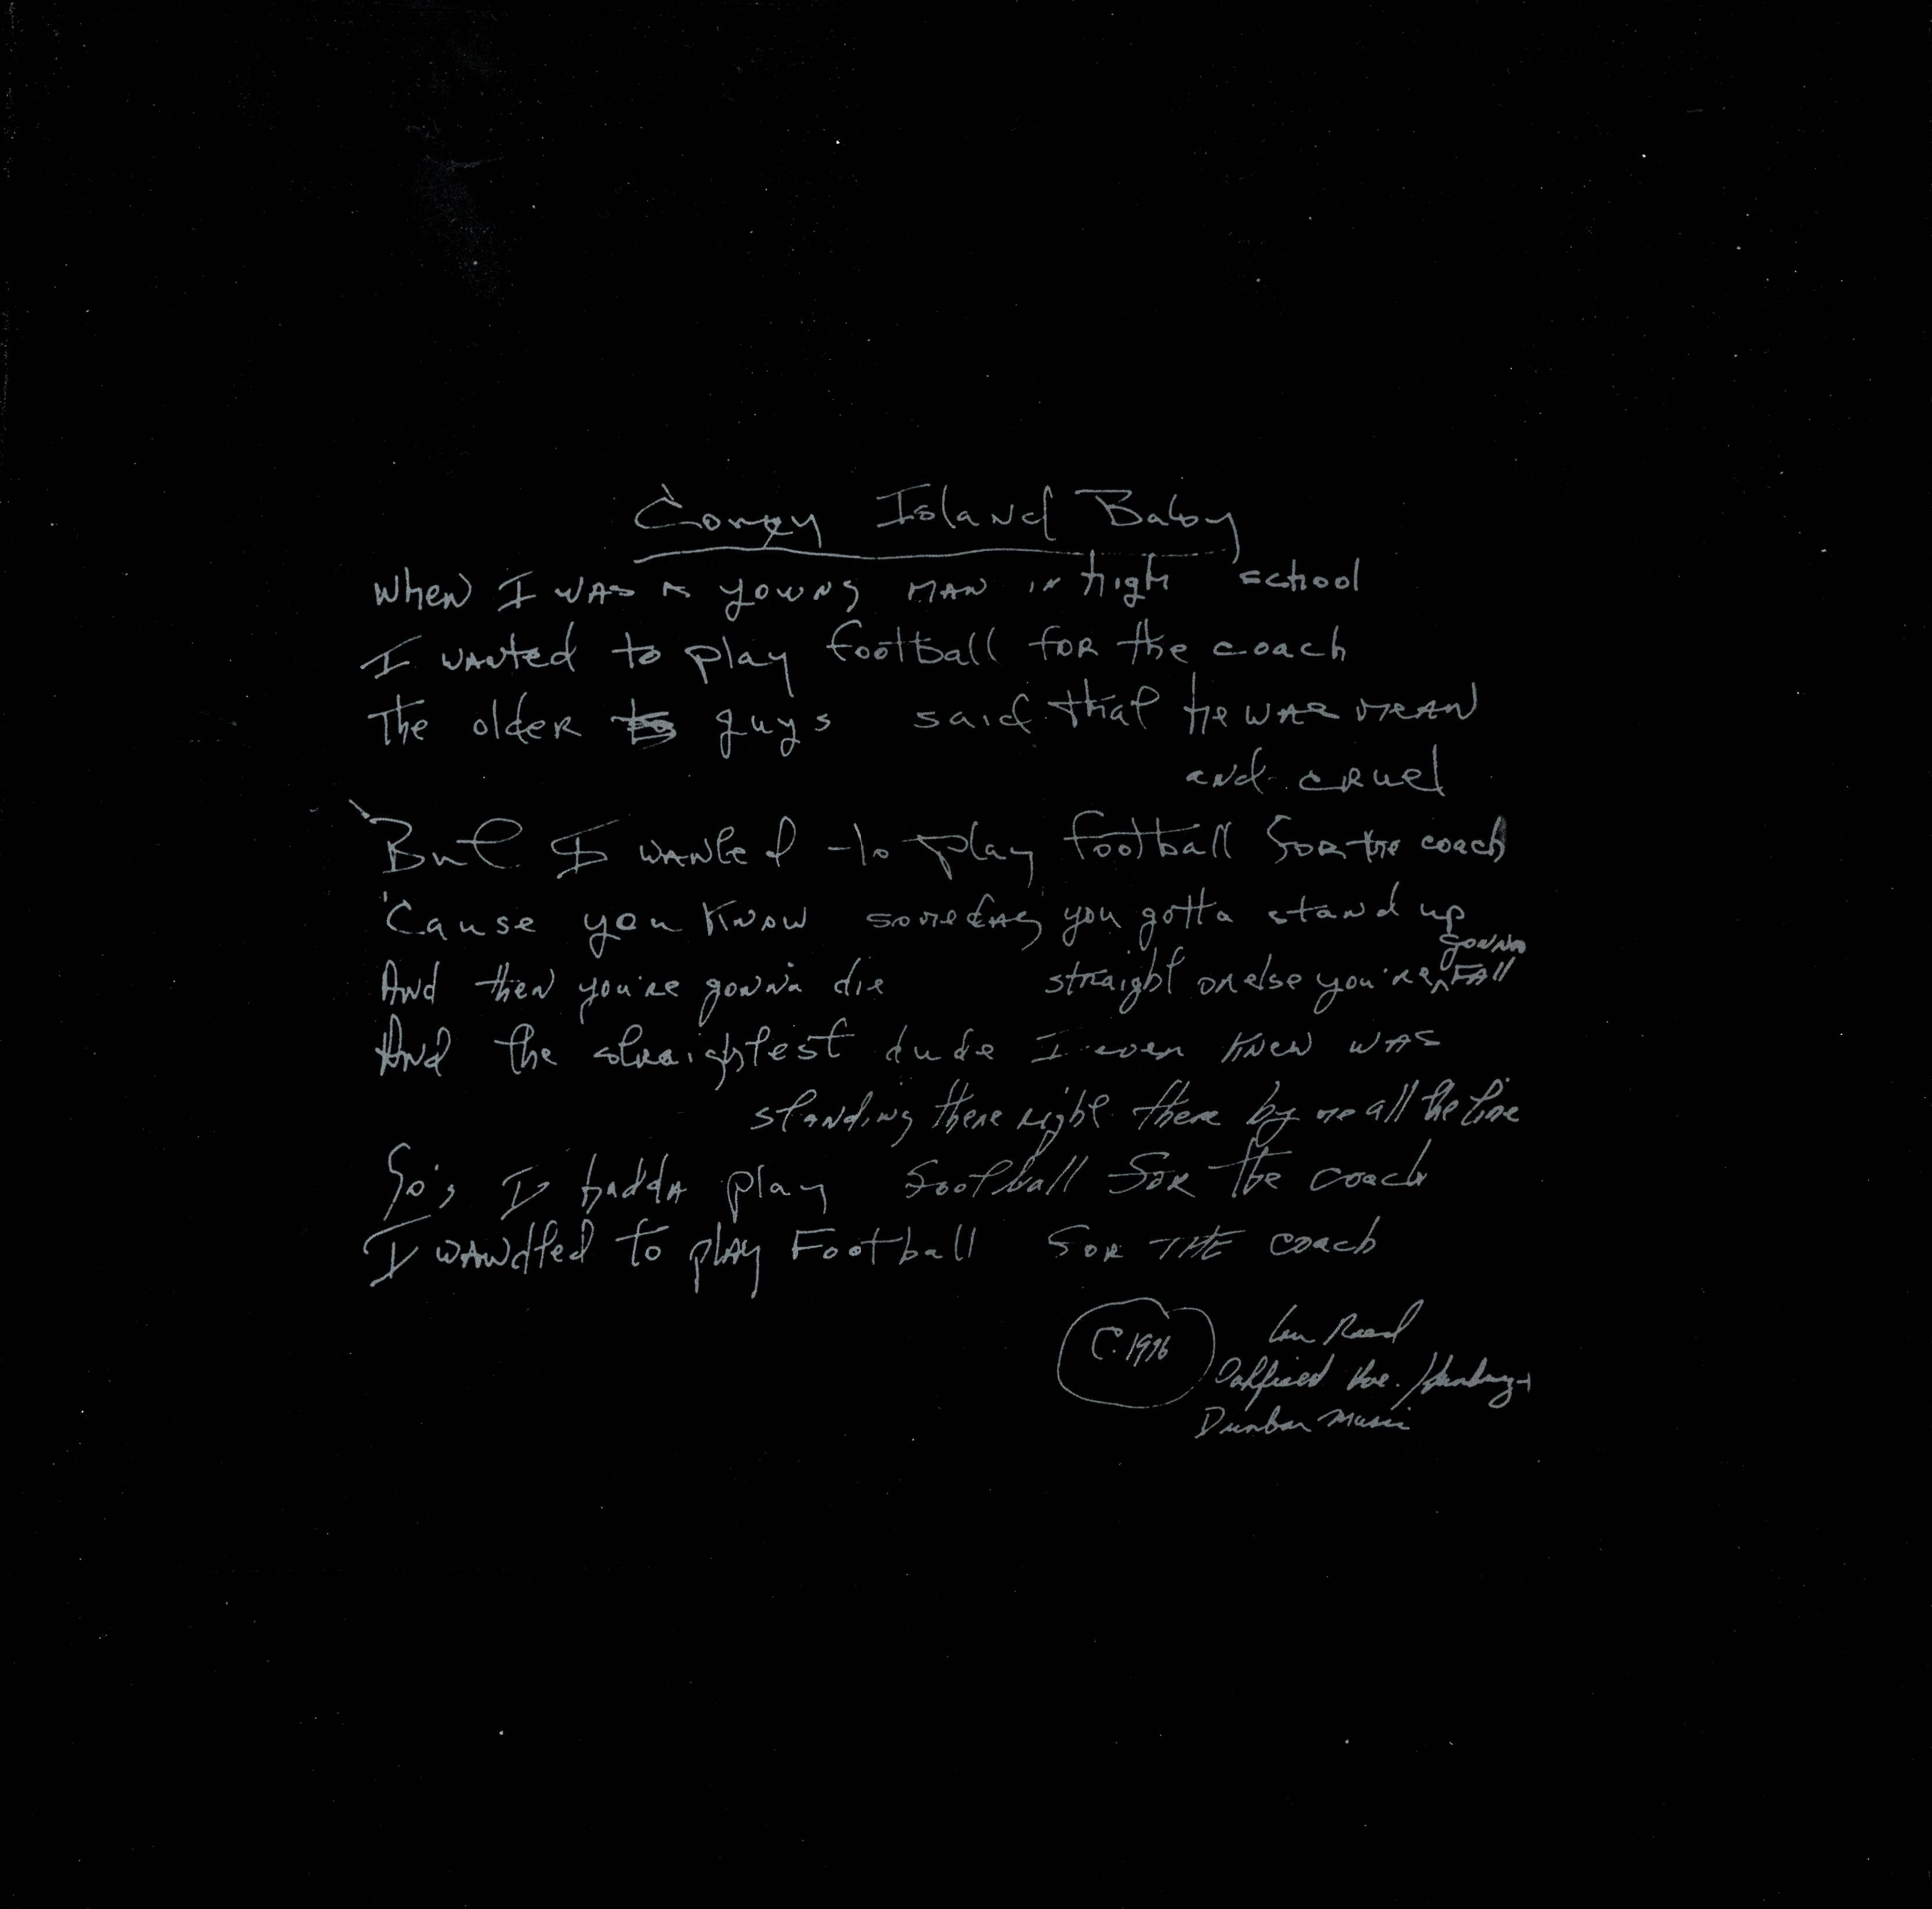 Coney Island Baby
When I was a young man in high school
I wanted to play football for the coach
The older guys said that he was mean
and cruel
But I wanted to play football for the coach
'Cause you know someday you gotta stand up
gonna
And then you're gonna die straight or else you're fall
And the straightest dude I ever knew was
standing there right there by me all the time
So's I hadda play football for the coach
I wandted to play Football for THE coach
C. 1976 Lou Reed
Oakfield Ave.
Dunbar Music